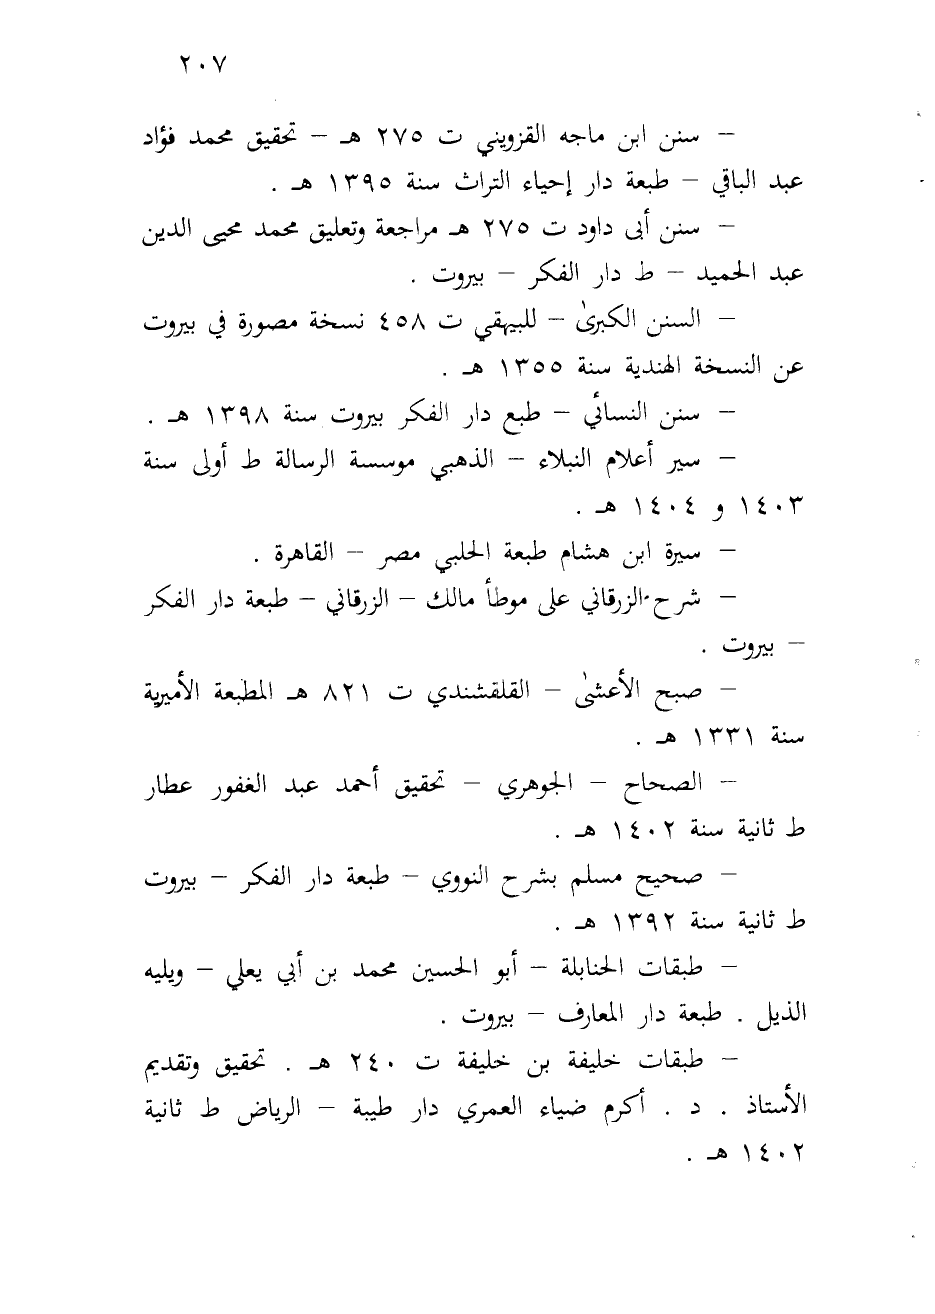 ٢٠٧
— سنن ابن ماجه القزويني ت ٢٧٥ هـ — تحقيق محمد فؤاد
عبد الباقي — طبعة دار إحياء التراث سنة ١٣٩٥ هـ .
— سنن أبى داود ت ٢٧٥ هـ مراجعة وتعليق محمد محيى الدين
عبد الحميد — ط دار الفكر — بيروت .
— السنن الكبرىٰ — للبيهقي ت ٤٥٨ نسخة مصورة في بيروت
عن النسخة الهندية سنة ١٣٥٥ هـ .
— سنن النسائي — طبع دار الفكر بيروت سنة ١٣٩٨ هـ .
— سير أعلام النبلاء — الذهبي موسسة الرسالة ط أولى سنة
١٤٠٣ و ١٤٠٤ هـ .
— سيرة ابن هشام طبعة الحلبي مصر — القاهرة .
— شرح الزرقاني على موطأ مالك — الزرقاني — طبعة دار الفكر
— بيروت .
— صبح الأعشىٰ — القلقشندي ت ٨٢١ هـ المطبعة الأميرية
سنة ١٣٣١ هـ .
— الصحاح — الجوهري — تحقيق أحمد عبد الغفور عطار
ط ثانية سنة ١٤٠٢ هـ .
— صحيح مسلم بشرح النووي — طبعة دار الفكر — بيروت
ط ثانية سنة ١٣٩٢ هـ .
— طبقات الحنابلة — أبو الحسين محمد بن أبي يعلي — ويليه
الذيل . طبعة دار المعارف — بيروت .
— طبقات خليفة بن خليفة ت ٢٤٠ هـ . تحقيق وتقديم
الأستاذ . د . أكرم ضياء العمري دار طيبة — الرياض ط ثانية
١٤٠٢ هـ .